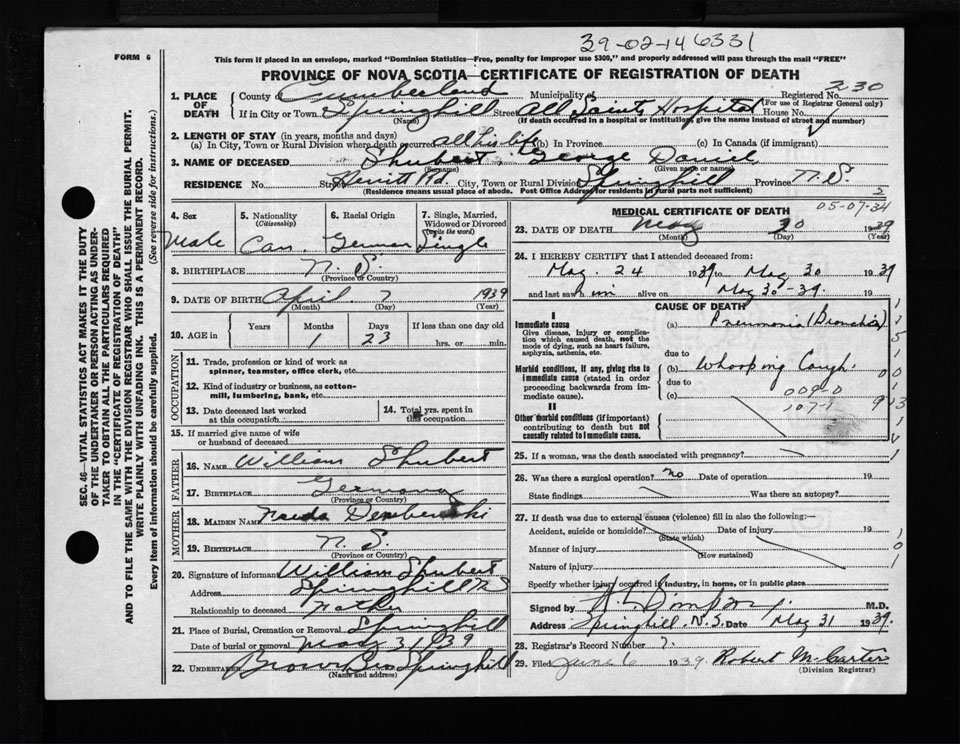 39-02-146331
FORM 6
This form if placed in an envelope, marked "Dominion Statistics—Free, penalty for improper use $300," and properly addressed will pass through the mail "FREE"
PROVINCE OF NOVA SCOTIA—CERTIFICATE OF REGISTRATION OF DEATH
230
1. PLACE OF DEATH
County of Cumberland Municipality of Registered No.
(For use of Registrar General only)
If in City or Town Springhill Street All Saints Hospital House No.
(Name) (If death occurred in a hospital or institution, give the name instead of street and number)
2. LENGTH OF STAY (in years, months and days)
(a) In City, Town or Rural Division where death occurred all his life (b) In Province (c) In Canada (if immigrant)
3. NAME OF DECEASED Shubert George Daniel
(Surname) (Given name or names)
RESIDENCE No. Street Herritt Rd. City, Town or Rural Division Springhill Province N.S.
(Residence means usual place of abode. Post Office Address for residents in rural parts not sufficient)
4. Sex
Male
5. Nationality
(Citizenship)
Can.
6. Racial Origin
German
7. Single, Married, Widowed or Divorced
(write the word)
Single
8. BIRTHPLACE N. S.
(Province or Country)
9. DATE OF BIRTH April 7 1939
(Month) (Day) (Year)
10. AGE in
Years Months Days If less than one day old
1 23 hrs. or min.
OCCUPATION
11. Trade, profession or kind of work as
spinner, teamster, office clerk, etc.
12. Kind of industry or business, as cotton-
mill, lumbering, bank, etc.
13. Date deceased last worked
at this occupation
14. Total yrs. spent in
this occupation
15. If married give name of wife
or husband of deceased
FATHER
16. NAME William Shubert
17. BIRTHPLACE Germany
(Province or Country)
MOTHER
18. MAIDEN NAME
19. BIRTHPLACE N. S.
(Province or Country)
20. Signature of informant William Shubert
Address Springhill N S
Relationship to deceased Father
21. Place of Burial, Cremation or Removal Springhill
Date of burial or removal May 31 1939
22. UNDERTAKER Brown Bros Springhill
(Name and address)
MEDICAL CERTIFICATE OF DEATH
05-07-34
23. DATE OF DEATH May 30 1939
(Month) (Day) (Year)
24. I HEREBY CERTIFY that I attended deceased from:
May 24 1939 to May 30 1939
and last saw him alive on May 30-39. 19
CAUSE OF DEATH
I
Immediate cause
Give disease, injury or complica-
tion which caused death, not the
mode of dying, such as heart failure,
asphyxia, asthenia, etc.
Morbid conditions, if any, giving rise to
immediate cause (stated in order
proceeding backwards from im-
mediate cause).
II
Other morbid conditions (if important)
contributing to death but not
causally related to immediate cause.
(a) Pneumonia (Bronchial)
due to
(b) Whooping Cough.
due to
(c) 009-0
107-1
25. If a woman, was the death associated with pregnancy?
26. Was there a surgical operation? No Date of operation 19
State findings Was there an autopsy?
27. If death was due to external causes (violence) fill in also the following:—
Accident, suicide or homicide? Date of injury 19
(State which)
Manner of injury
(How sustained)
Nature of injury
Specify whether injury occurred in industry, in home, or in public place
Signed by Simpson M.D.
Address Springhill N.S. Date May 31 1939.
28. Registrar's Record Number 7.
29. Filed June 6 1939. Robert McCarter
(Division Registrar)
SEC. 46—VITAL STATISTICS ACT MAKES IT THE DUTY
OF THE UNDERTAKER OR PERSON ACTING AS UNDER-
TAKER TO OBTAIN ALL THE PARTICULARS REQUIRED
IN THE "CERTIFICATE OF REGISTRATION OF DEATH"
AND TO FILE THE SAME WITH THE DIVISION REGISTRAR WHO SHALL ISSUE THE BURIAL PERMIT.
WRITE PLAINLY WITH UNFADING INK. THIS IS A PERMANENT RECORD.
Every item of information should be carefully supplied. (See reverse side for instructions.)